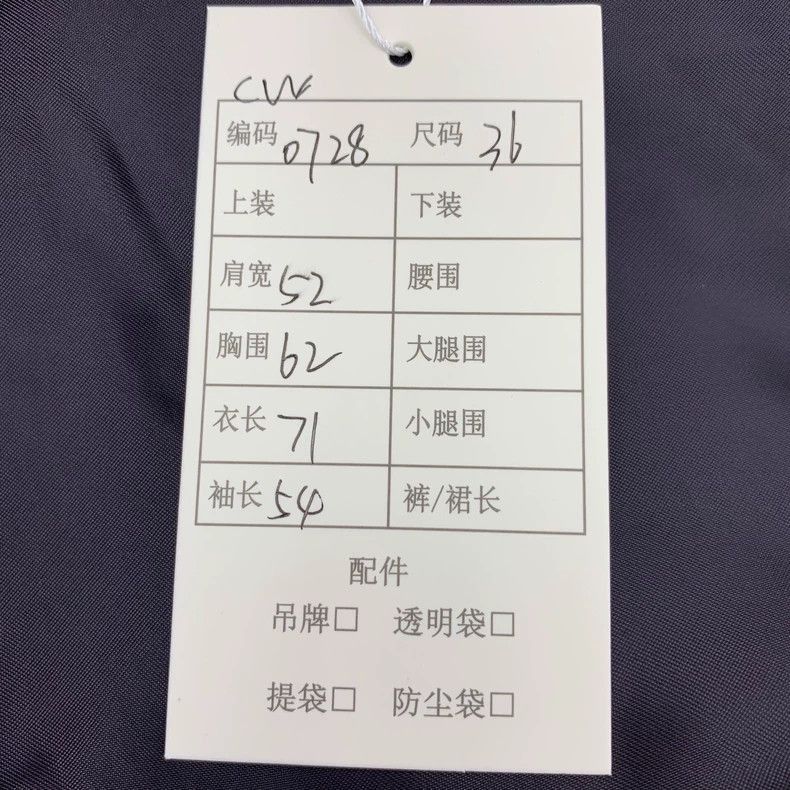 CW
编码 0728 尺码 36
上装 下装
肩宽 52 腰围
胸围 62 大腿围
衣长 71 小腿围
袖长 54 裤/裙长
配件
吊牌□ 透明袋□
提袋□ 防尘袋□